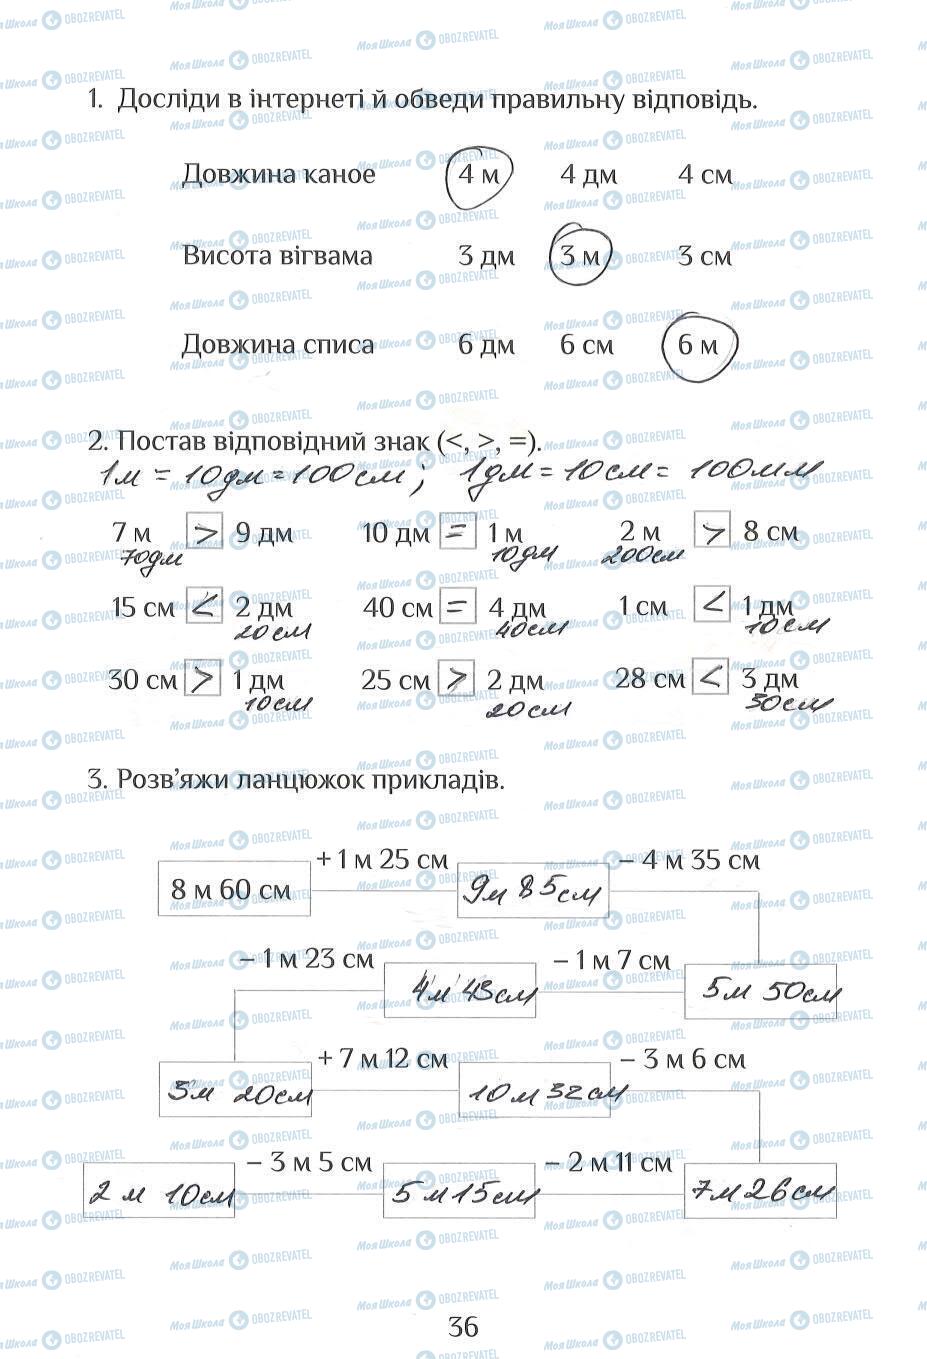 1. Досліди в інтернеті й обведи правильну відповідь.
Довжина каное 4 м 4 дм 4 см
Висота вігвама 3 дм 3 м 3 см
Довжина списа 6 дм 6 см 6 м
2. Постав відповідний знак (<, >, =).
1м = 10дм = 100см; 1дм = 10см = 100мм
7 м > 9 дм 10 дм = 1 м 2 м > 8 см
70дм 10дм 200см
15 см < 2 дм 40 см = 4 дм 1 см < 1 дм
20см 40см 10см
30 см > 1 дм 25 см > 2 дм 28 см < 3 дм
10см 20см 30см
3. Розв’яжи ланцюжок прикладів.
+ 1 м 25 см – 4 м 35 см
8 м 60 см 9м 85см
– 1 м 23 см – 1 м 7 см
4м 43см 5м 50см
+ 7 м 12 см – 3 м 6 см
3м 20см 10м 32см
– 3 м 5 см – 2 м 11 см
2 м 10см 5м 15см 7м 26см
36
МояШкола OBOZREVATEL